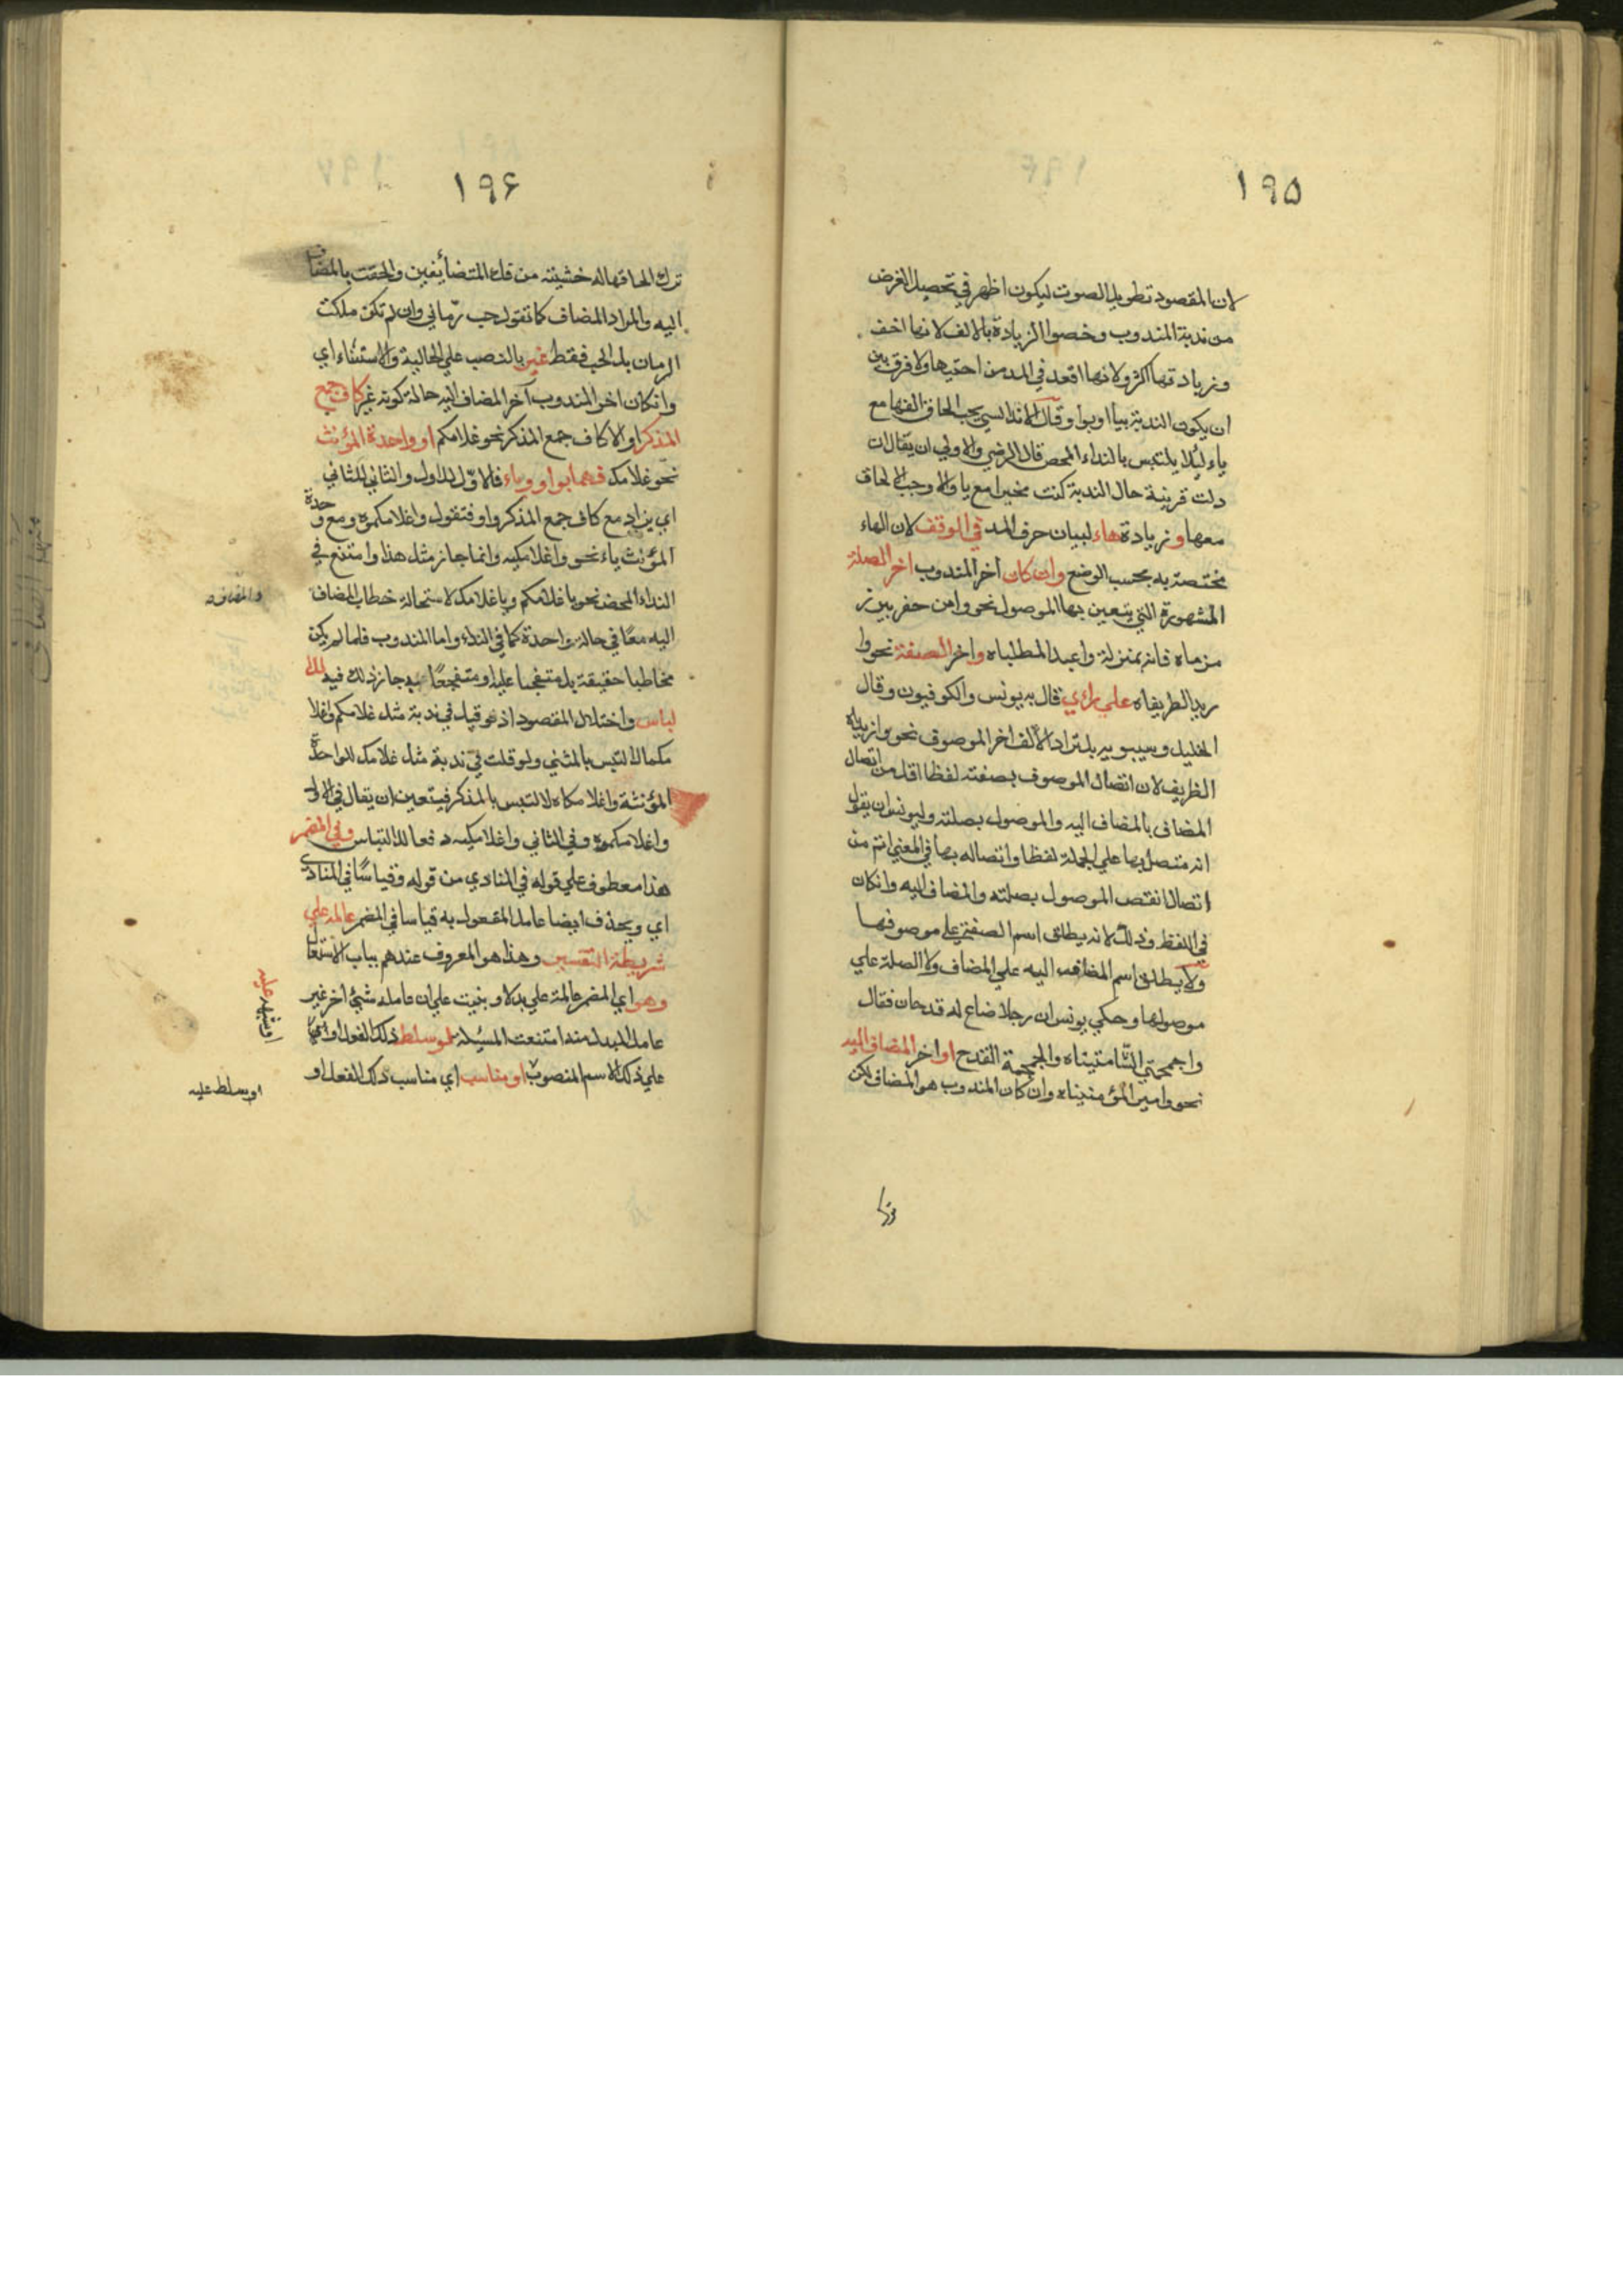 ١٩٥
لان المقصود تطويل الصوت ليكون اظهر في تحصيل الغرض
من ندبة المندوب وخصوا الزيادة بالالف لانها اخف
وزيادتها اكثر ولانها اقعد في المد من اختيها ولا فرق بين
ان يكون الندبة بيا او بوا وقال الاندلسي يجب الحاق الفها مع
ياء ليلا يلتبس بالنداء المحض قال الرضي والاولى ان يقال ان
دلت قرينة حال الندبة كنت مخيرا مع يا والا وجب الالحاق
معها وزيادة هاء لبيان حرف المد في الوقف لان الهاء
مختصة به بحسب الوضع وان كان اخر المندوب اخر الصلة
المشهورة التي يتعين بها الموصول نحو وامن حفر بير ز
مزماه فانه بمنزلة واعبد المطلباه واخر الصفة نحو وا
زيد الظريفاه على راي قال به يونس والكوفيون وقال
الخليل وسيبويه بل تزاد الالف اخر الموصوف نحو وازيداه
الظريف لان اتصال الموصوف بصفته لفظا اقل من اتصال
المضاف بالمضاف اليه والموصول بصلته وليونس ان يقول
انه متصل بها على الجملة لفظا واتصاله بها في المعنى اتم من
اتصالا نقص الموصول بصلته والمضاف اليه وانكان
في اللفظ وذلك لانه يطلق اسم الصفة على موصوفها
ولا يطلق اسم المضاف اليه على المضاف ولا الصلة على
موصولها وحكي يونس ان رجلا ضاع له قدحان فقال
واجمجمتي الشامتيناه والجمجمة القدح او اخر المضاف اليه
نحو وامير المؤمنيناه وان كان المندوب هو المضاف لكن
١٩۶
ترك الحاقها له خشية من فك المتضائفين والحقت بالمضاف
اليه والمراد المضاف كما تقول حب رماني وان لم تكن ملكت
الرمان بل الحب فقط غير بالنصب على الحالية والاستثناء اي
وانكان اخر المندوب آخر المضاف اليه حالة كونه غير كاف جمع
المذكر او الا كاف جمع المذكر نحو غلامكم او واحدة المؤنث
نحو غلامك فهما بواو وياء فالاول للاول والثاني للثاني
اي يزاد مع كاف جمع المذكر واو فتقول واغلامكموه ومع وحدة
المؤنث ياء نحو واغلامكيه وانما جاز مثل هذا وامتنع في
النداء المحض نحو يا غلامكم ويا غلامك لاستحالة خطاب المضاف
والمضاف
اليه معا في حالة واحدة كما في النداء واما المندوب فلما لم يكن
مخاطبا حقيقة بل متفجعا عليه او متفجعا به جاز ذلك فيه للا
لباس واختلال المقصود اذ لو قيل في ندبة مثل غلامكم واغلا
مكماه لالتبس بالمثنى ولو قلت في ندبة مثل غلامك للواحدة
المؤنثة واغلامكاه لالتبس بالمذكر فيتعين ان يقال في الاول
واغلامكموه وفي الثاني واغلامكيه دفعا للالتباس وفي المضمر
هذا معطوف على قوله في المنادي من قوله وقياسا في المنادى
اي ويحذف ايضا عامل المفعول به قياسا في المضمر عامله على
شريطة التفسير وهذا هو المعروف عندهم بباب الاشتغال
وهو اي المضمر عامله على بدلا وبنيت على ان عامله شيئ اخر غير
عامل المبدل منه امتنعت المسئلة لو سلط ذلك الفعل او
على ذلك الاسم المنصوب او مناسب اي مناسب ذلك الفعل او
او سلط عليه